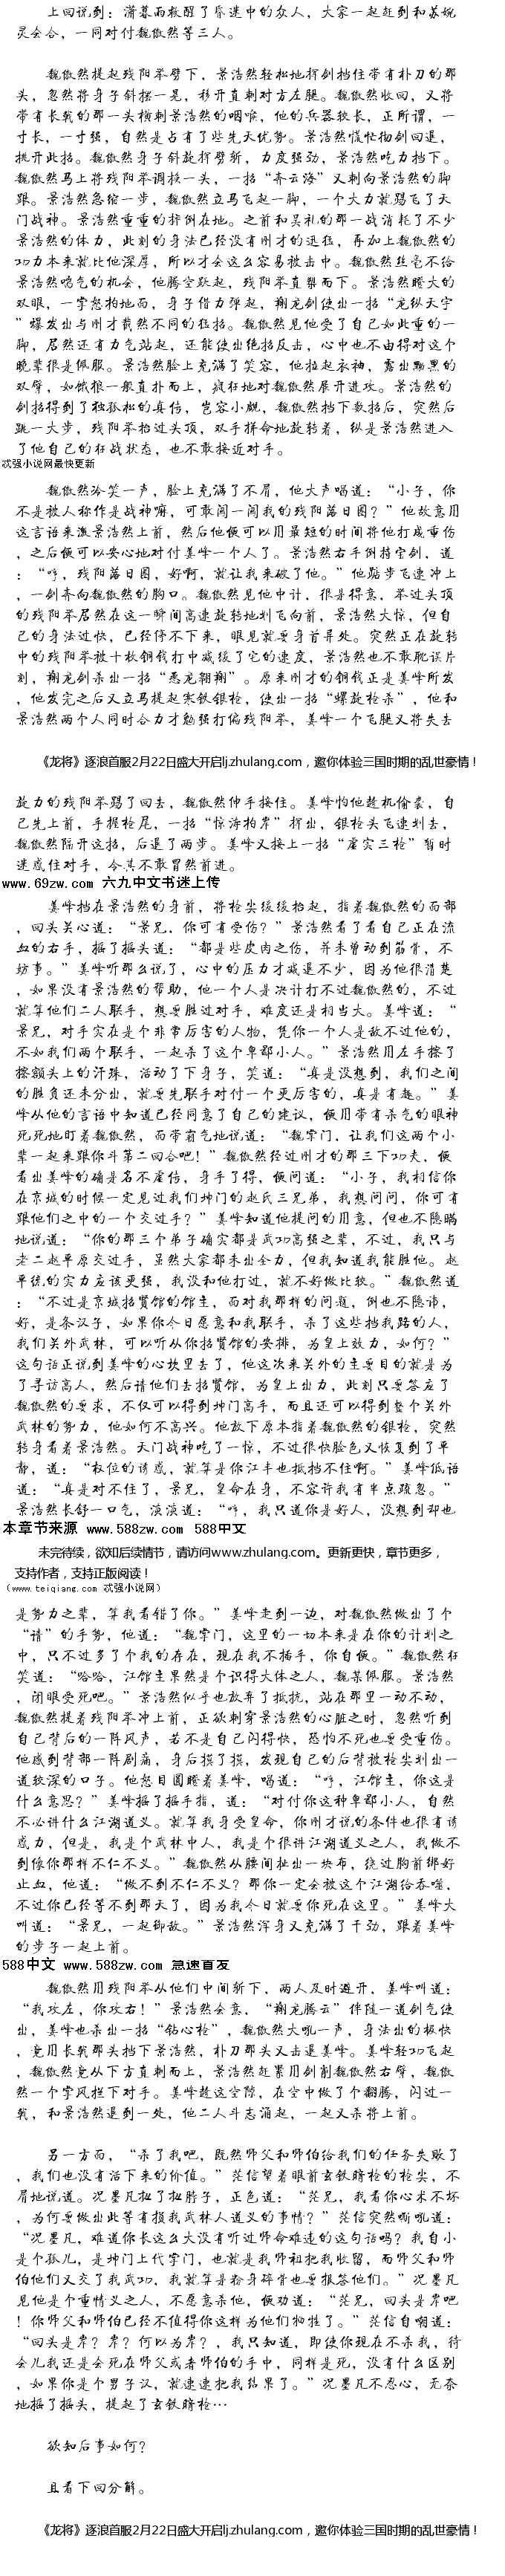 上回说到：潇暮雨救醒了昏迷中的众人，大家一起赶到和苏婉
灵会合，一同对付魏傲然等三人。
魏傲然提起残阳举劈下，景浩然轻松地挥剑挡住带有朴刀的那
头，忽然将身子斜摆一晃，移开直刺对方左腿。魏傲然收回，又将
带有长戟的那一头横刺景浩然的咽喉，他的兵器较长，正所谓，一
寸长，一寸强，自然是占有了些先天优势。景浩然慌忙抽剑回退，
挑开此招。魏傲然身子斜旋挥臂斩，力度强劲，景浩然吃力挡下。
魏傲然马上将残阳举调换一头，一招“齐云海”又刺向景浩然的脚
跟。景浩然急缩一步，魏傲然立马飞起一脚，一个大力就踢飞了天
门战神。景浩然重重的摔倒在地。之前和吴礼的那一战消耗了不少
景浩然的体力，此刻的身法已经没有刚才的迅猛，再加上魏傲然的
功力本来就比他深厚，所以才会这么容易被击中。魏傲然丝毫不给
景浩然喘气的机会，他腾空跃起，残阳举直插而下。景浩然瞪大的
双眼，一掌怒拍地面，身子借力弹起，翔龙剑使出一招“龙纵天宇
”爆发出与刚才截然不同的猛招。魏傲然见他受了自己如此重的一
脚，居然还有力气站起，还能使出绝招反击，心中也不由得对这个
晚辈很是佩服。景浩然脸上充满了笑容，他拉起衣袖，露出黝黑的
双臂，如饿狼一般直扑而上，疯狂地对魏傲然展开进攻。景浩然的
剑招得到了独孤松的真传，岂容小觑，魏傲然挡下数招后，突然后
跳一大步，残阳举抬过头顶，双手拼命地旋转着，纵是景浩然进入
了他自己的狂战状态，也不敢接近对手。
忒强小说网最快更新
魏傲然冷笑一声，脸上充满了不屑，他大声喝道：“小子，你
不是被人称作是战神嘛，可敢闯一闯我的残阳落日圈？”他故意用
这言语来激景浩然上前，然后他便可以用最短的时间将他打成重伤
，之后便可以安心地对付姜峰一个人了。景浩然右手倒持宝剑，道
：“哼，残阳落日圈，好啊，就让我来破了他。”他踮步飞速冲上
，一剑奔向魏傲然的胸口。魏傲然见他中计，很是得意，举过头顶
的残阳举居然在这一瞬间高速旋转地划飞向前，景浩然大惊，但自
己的身法过快，已经停不下来，眼见就要身首异处。突然正在旋转
中的残阳举被十枚钢钱打中减缓了它的速度，景浩然也不敢耽误片
刻，翔龙剑杀出一招“恶龙朝翔”。原来刚才的钢钱正是姜峰所发
，他发完之后又立马提起寒铁银枪，使出一招“螺旋枪杀”，他和
景浩然两个人同时合力才勉强打偏残阳举，姜峰一个飞腿又将失去
《龙将》逐浪首服2月22日盛大开启lj.zhulang.com，邀你体验三国时期的乱世豪情！
旋力的残阳举踢了回去，魏傲然伸手接住。姜峰怕他趁机偷袭，自
己先上前，手握枪尾，一招“惊海拍岸”挥出，银枪头飞速划去，
魏傲然隔开这招，后退了两步。姜峰又接上一招“虚实三枪”暂时
迷惑住对手，令其不敢冒然前进。
www.69zw.com 六九中文书迷上传
姜峰挡在景浩然的身前，将枪尖缓缓抬起，指着魏傲然的面部
，回头关心道：“景兄，你可有受伤？”景浩然看了看自己正在流
血的右手，摇了摇头道：“都是些皮肉之伤，并未曾动到筋骨，不
妨事。”姜峰听那么说了，心中的压力才减退不少，因为他很清楚
，如果没有景浩然的帮助，他一个人是决计打不过魏傲然的，不过
就算他们二人联手，想要胜过对手，难度还是相当大。姜峰道：“
景兄，对手实在是个非常厉害的人物，凭你一个人是敌不过他的，
不如我们两个联手，一起杀了这个卑鄙小人。”景浩然用左手擦了
擦额头上的汗珠，活动了下身子，笑道：“真是没想到，我们之间
的胜负还未分出，就要先联手对付一个更厉害的，真是有趣。”姜
峰从他的言语中知道已经同意了自己的建议，便用带有杀气的眼神
死死地盯着魏傲然，而带霸气地说道：“魏掌门，让我们这两个小
辈一起来跟你斗第二回合吧！”魏傲然经过刚才的那三下功夫，便
看出姜峰的确是名不虚传，身手了得，便问道：“小子，我相信你
在京城的时候一定见过我们坤门的赵氏三兄弟，我想问问，你可有
跟他们之中的一个交过手？”姜峰知道他提问的用意，但也不隐瞒
地说道：“你的那三个弟子确实都是武功高强之辈，不过，我只与
老二赵平原交过手，虽然大家都未出全力，但我知道我能胜他。赵
平统的实力应该更强，我没和他打过，就不好做比较。”魏傲然道
：“不过是京城招贤馆的馆主，面对我那样的问题，倒也不隐讳，
好，是条汉子，如果你今日愿意和我联手，杀了这些挡我路的人，
我们关外武林，可以听从你招贤馆的安排，为皇上效力，如何？”
这句话正说到姜峰的心坎里去了，他这次来关外的主要目的就是为
了寻访高人，然后请他们去招贤馆，为皇上出力，此刻只要答应了
魏傲然的要求，不仅可以得到坤门高手，而且还可以得到整个关外
武林的努力，他如何不高兴。他放下原本指着魏傲然的银枪，突然
转身看着景浩然。天门战神吃了一惊，不过很快脸色又恢复到了平
静，道：“权位的诱惑，就算是你江丰也抵挡不住啊。”姜峰低语
道：“真是对不住了，景兄，皇命在身，不容许我有半点疏忽。”
景浩然长舒一口气，淡淡道：“哼，我只道你是好人，没想到却也
本章节来源 www.588zw.com 588中文
未完待续，欲知后续情节，请访问www.zhulang.com。更新更快，章节更多，
支持作者，支持正版阅读！
（www.teiqiang.com 忒强小说网）
是势力之辈，算我看错了你。”姜峰走到一边，对魏傲然做出了个
“请”的手势，他道：“魏掌门，这里的一切本来是在你的计划之
中，只不过多了个我的存在，现在我不插手，你自便。”魏傲然狂
笑道：“哈哈，江馆主果然是个识得大体之人，魏某佩服。景浩然
，闭眼受死吧。”景浩然似乎也放弃了抵抗，站在那里一动不动，
魏傲然提着残阳举冲上前，正欲刺穿景浩然的心脏之时，忽然听到
自己背后的一阵风声，若不是自己闪得快，恐怕不死也要受重伤。
他感到背部一阵剧痛，身后摸了摸，发现自己的后背被枪尖划出一
道较深的口子。他怒目圆瞪着姜峰，喝道：“哼，江馆主，你这是
什么意思？”姜峰摇了摇手指，道：“对付你这种卑鄙小人，自然
不必讲什么江湖道义。就算我身受皇命，你刚才说的条件也很有诱
惑力，但是，我是个武林中人，我是个很讲江湖道义之人，我做不
到像你那样不仁不义。”魏傲然从腰间扯出一块布，绕过胸前绑好
止血，他道：“做不到不仁不义？那你一定会被这个江湖给吞噬，
不过你已经等不到那天了，因为我今日就要你死在这里。”姜峰大
叫道：“景兄，一起御敌。”景浩然浑身又充满了干劲，跟着姜峰
的步子一起上前。
588中文 www.588zw.com 急速首发
魏傲然用残阳举从他们中间斩下，两人及时避开，姜峰叫道：
“我攻左，你攻右！”景浩然会意，“翔龙腾云”伴随一道剑气使
出，姜峰也杀出一招“钻心枪”，魏傲然大吼一声，身法出的极快
，竟用长戟那头挡下景浩然，朴刀那头又击退姜峰。姜峰轻功飞起
，魏傲然竟从下方直刺而上，景浩然赶紧用剑削魏傲然右臂，魏傲
然一个掌风拦下对手。姜峰趁这空隙，在空中做了个翻腾，闪过一
戟，和景浩然退到一处，他二人斗志涌起，一起又杀将上前。
另一方面，“杀了我吧，既然师父和师伯给我们的任务失败了
，我们也没有活下来的价值。”茫信望着眼前玄铁暗枪的枪尖，不
屑地说道。况墨凡扯了扯脖子，正色道：“茫兄，我看你心术不坏
，为何要做出此等有损我武林人道义的事情？”茫信突然嘶吼道：
“况墨凡，难道你长这么大没有听过师命难违的这句话吗？我自小
是个孤儿，是坤门上代掌门，也就是我师祖把我收留，而师父和师
伯他们又交了我武功，我就算是粉身碎骨也要报答他们。”况墨凡
见他是个重情义之人，不愿意杀他，便劝道：“茫兄，回头是岸吧
！你师父和师伯已经不值得你这样为他们牺牲了。”茫信自嘲道：
“回头是岸？岸？何以为岸？，我只知道，即使你现在不杀我，待
会儿我还是会死在师父或者师伯的手中，同样是死，没有什么区别
，如果你是个男子汉，就速速把我结果了。”况墨凡不忍心，无奈
地摇了摇头，提起了玄铁暗枪…
欲知后事如何？
且看下回分解。
《龙将》逐浪首服2月22日盛大开启lj.zhulang.com，邀你体验三国时期的乱世豪情！